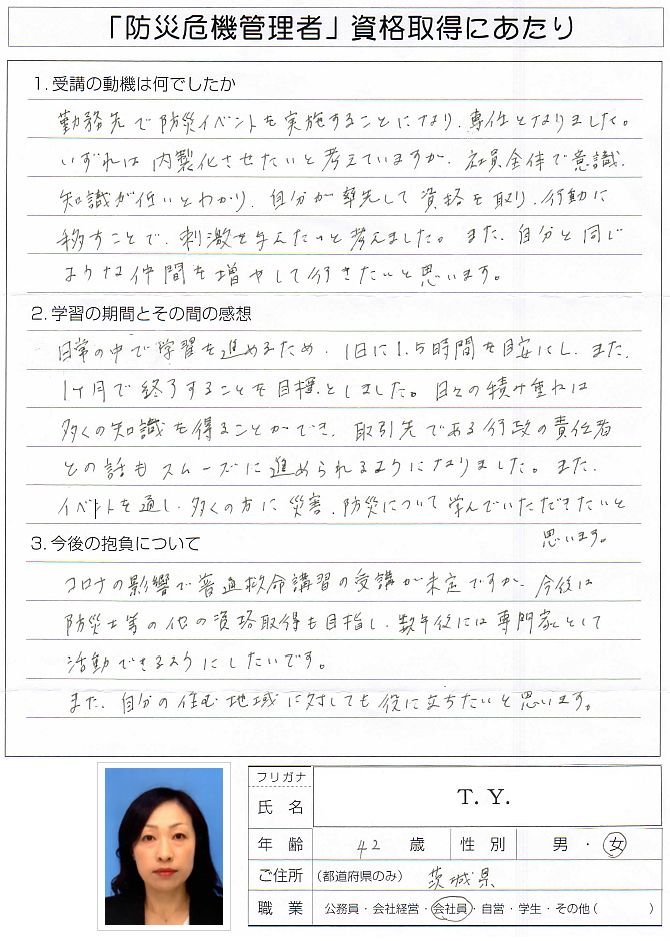 「防災危機管理者」資格取得にあたり
1. 受講の動機は何でしたか
勤務先で防災イベントを実施することになり、専任となりました。
いずれは内製化させたいと考えていますが、社員全体で意識、
知識が低いとわかり、自分が率先して資格を取り、行動に
移すことで、刺激を与えたいと考えました。また、自分と同じ
ような仲間を増やして行きたいと思います。
2. 学習の期間とその間の感想
日常の中で学習を進めるため、1日に1.5時間を目安にし、また、
1ヶ月で終了することを目標としました。日々の積み重ねは
多くの知識を得ることができ、取引先である行政の責任者
との話もスムーズに進められるようになりました。また、
イベントを通し、多くの方に災害、防災について学んでいただきたいと
思います。
3. 今後の抱負について
コロナの影響で普通救命講習の受講が未定ですが、今後は
防災士等の他の資格取得も目指し、数年後には専門家として
活動できるようにしたいです。
また、自分の住む地域に対しても役に立ちたいと思います。
フリガナ
氏 名 T. Y.
年 齢 42 歳 性 別 男 ・ 女
ご住所 (都道府県のみ) 茨城県
職 業 公務員・会社経営・会社員・自営・学生・その他( )